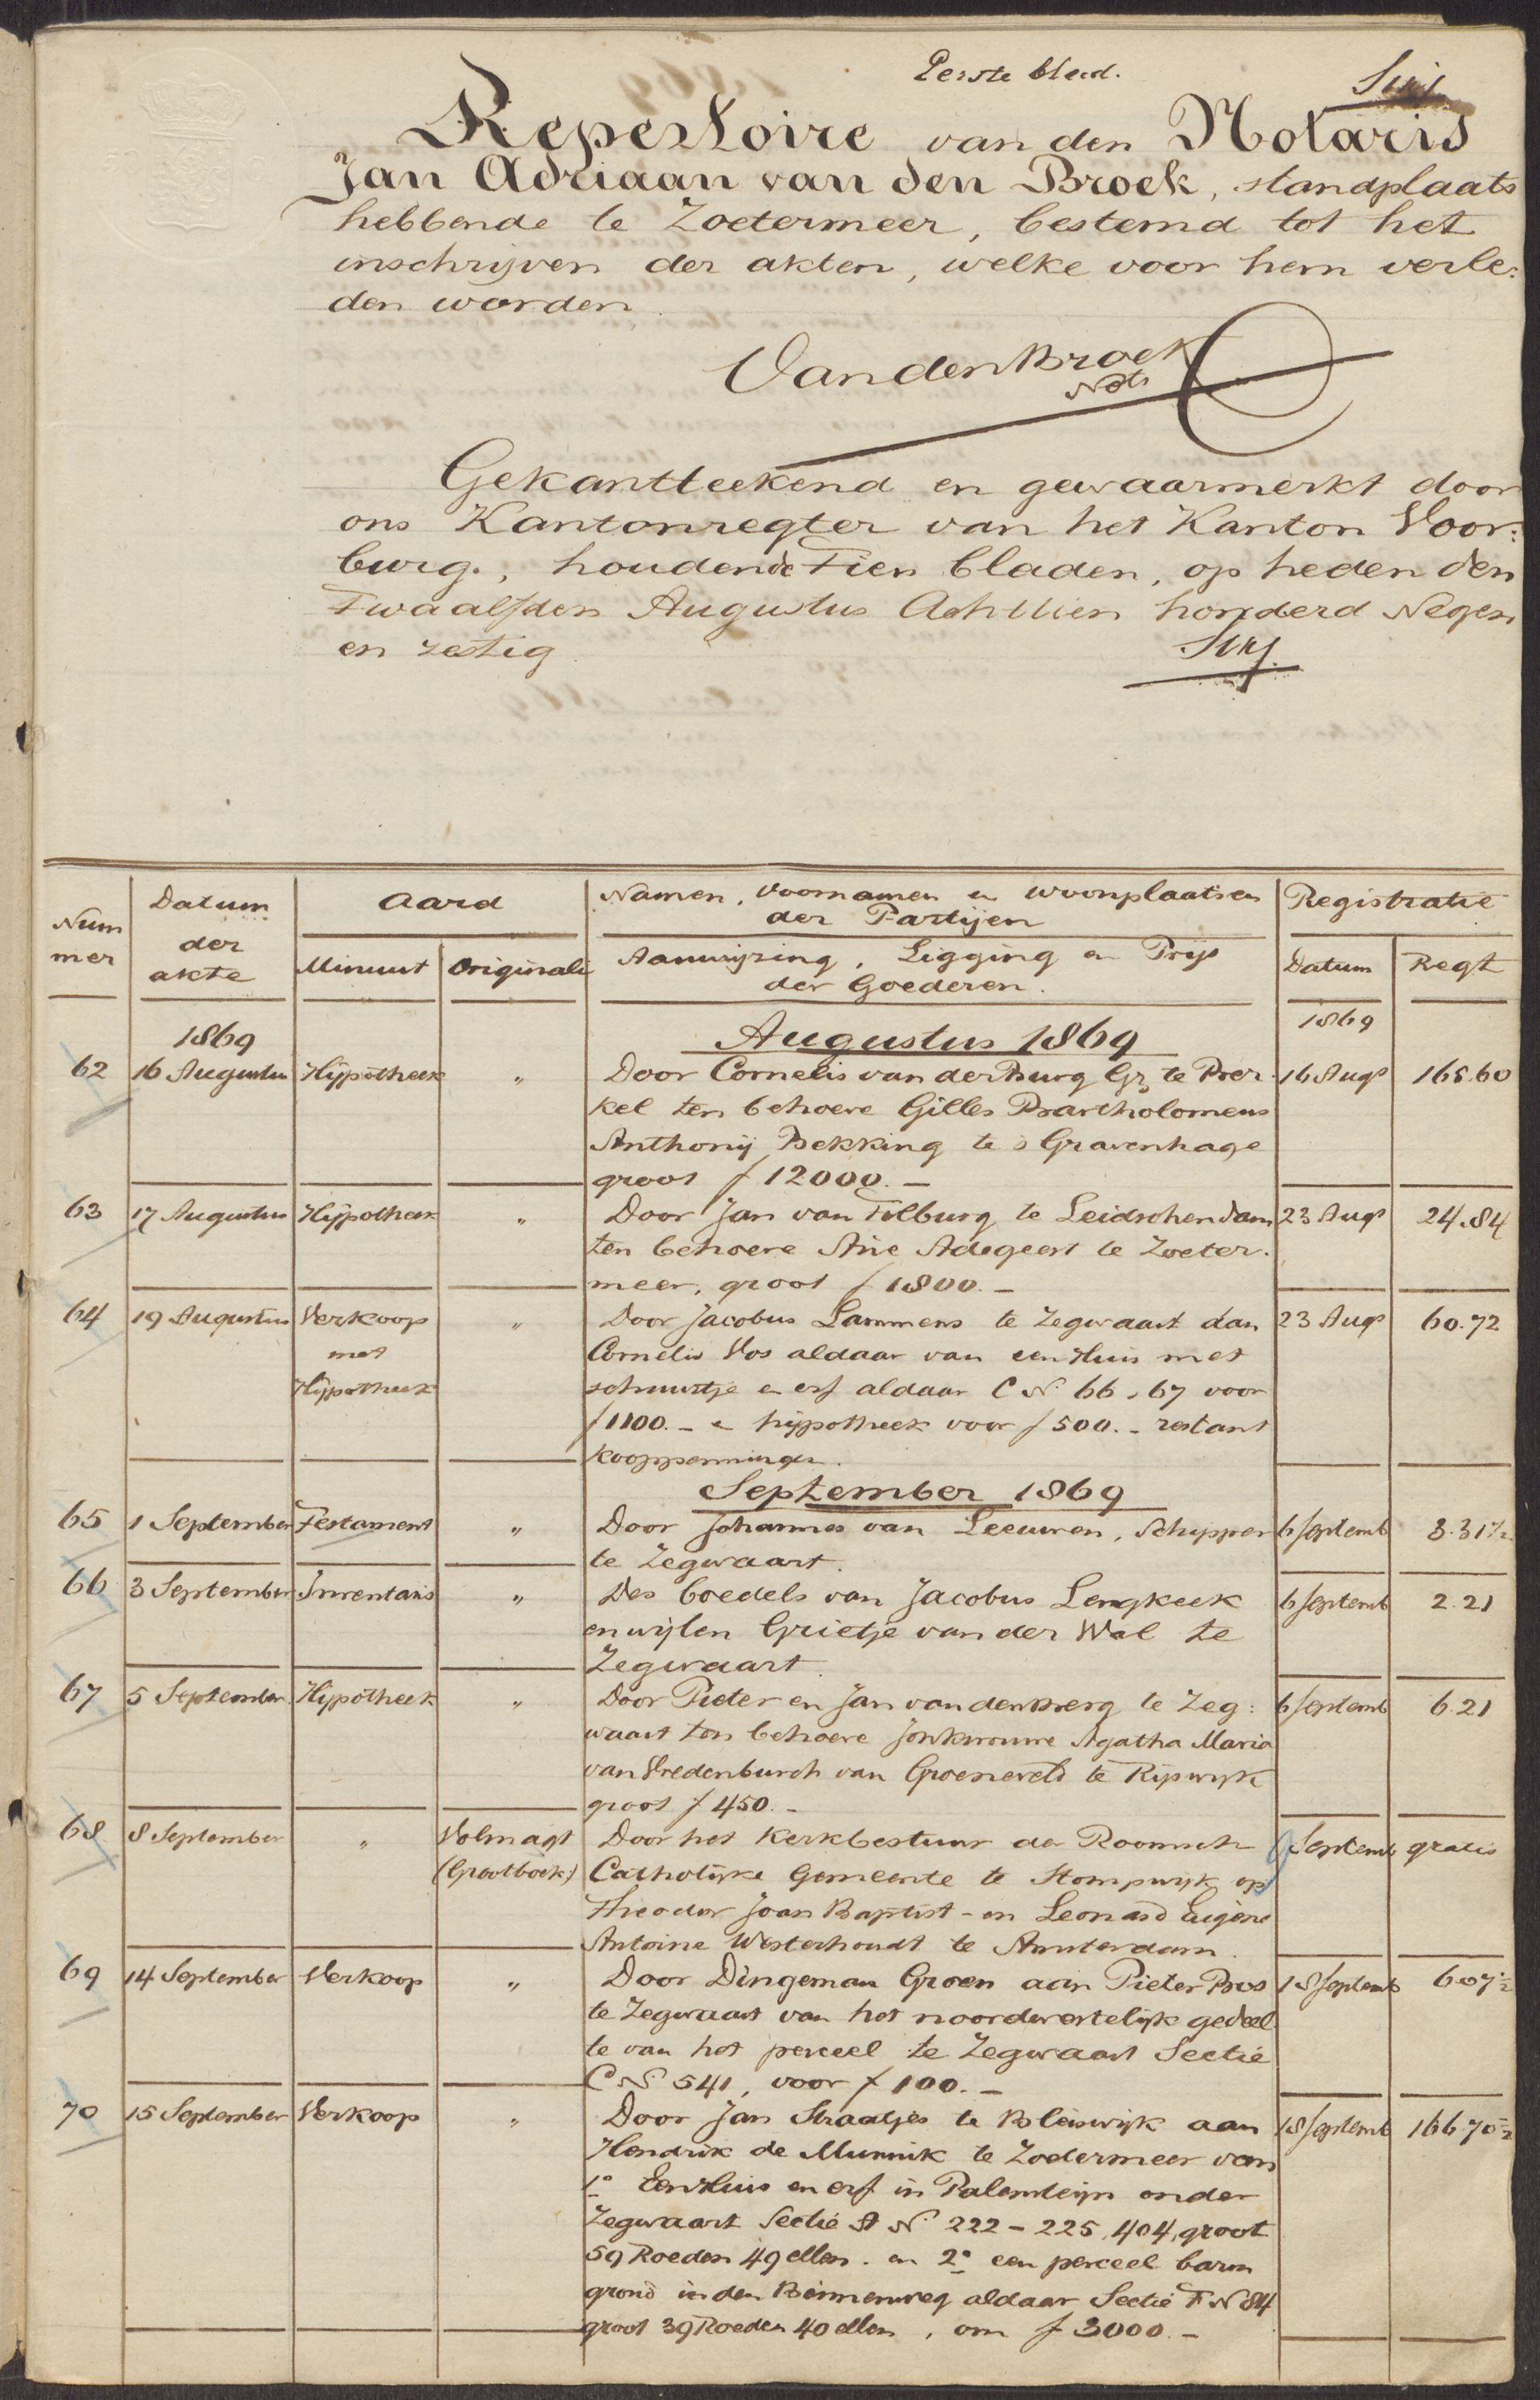 Eerste blad.
Repertoire van den Notaris
Jan Adriaan van den Broek, standplaats
hebbende te Zoetermeer, bestemd tot het
inschrijven der akten, welke voor hem verle:
den worden.
VandenBroek
Nots
Gekantteekend en gewaarmerkt door
ons Kantonregter van het Kanton Voor:
burg., houdende Tien bladen, op heden den
Twaalfden Augustus Achttien honderd Negen
en zestig
Num
mer
Datum
der
akte
Aard
Minuut
Originali
Namen, Voornamen en Woonplaatsen
der Partijen
Aanwijzing, Ligging en Prijs
der Goederen.
Registratie
Datum
Regt
1869
Augustus 1869
1869
62 16 Augustus Hypotheek " Door Cornelis van der Burg Gz te Ber 16 Augs 165.60
kel ten behoeve Gilles Bartholomeus
Anthonij Bekking te s Gravenhage
groot f 12000.-
63 17 Augustus Hypotheek " Door Jan van Tilburg te Leidschendam 23 Augs 24.84
ten behoeve Arie Adegeest te Zoeter.
meer, groot f 1800.-
64 19 Augustus Verkoop " Door Jacobus Lammens te Zegwaart dan 23 Augs 60.72
met Cornelis Vos aldaar van een Huis met
Hypotheek schuurtje en erf aldaar C No. 66, 67 voor
f 1100.- e hypotheek voor f 500.- restant
kooppenningen.
September 1869
65 1 September Testament " Door Johannes van Leeuwen, Schipper 6 Septemb 3.31½
te Zegwaart.
66 3 September Inventaris " Des boedels van Jacobus Lengkeek 6 Septemb 2.21
en wijlen Grietje van der Wal te
Zegwaart.
67 5 September Hypotheek " Door Pieter en Jan van den Berg te Zeg: 6 Septemb 6.21
waart ten behoeve Jonkvrouwe Agatha Maria
van Vredenburch van Groeneveld te Rijswijk
groot f 450.-
68 8 September " Volmagt Door het Kerkbestuur der Roomsch 9 Septemb gratis
(Grootboek) Catholijke Gemeente te Stompwijk op
Theodor Joan Baptist - en Leonard Eugène
Antoine Westerhoudt te Amsterdam.
69 14 September Verkoop " Door Dingeman Groen aan Pieter Bos 18 Septemb 6.07½
te Zegwaart van het noordwestelijk gedeel
te van het perceel te Zegwaart Sectie
C No. 541, voor f 100.-
70 15 September Verkoop " Door Jan Straatjes te Bleiswijk aan 18 Septemb 166.70½
Hendrik de Munnik te Zoetermeer van
1o Een Huis en erf in Palenstein onder
Zegwaart Sectie A No. 222 - 225, 404, groot
59 Roeden 49 ellen. en 2o een perceel barm
grond in den Binnenweg aldaar Sectie F No 84
groot 39 Roeden 40 ellen, om f 3000.-